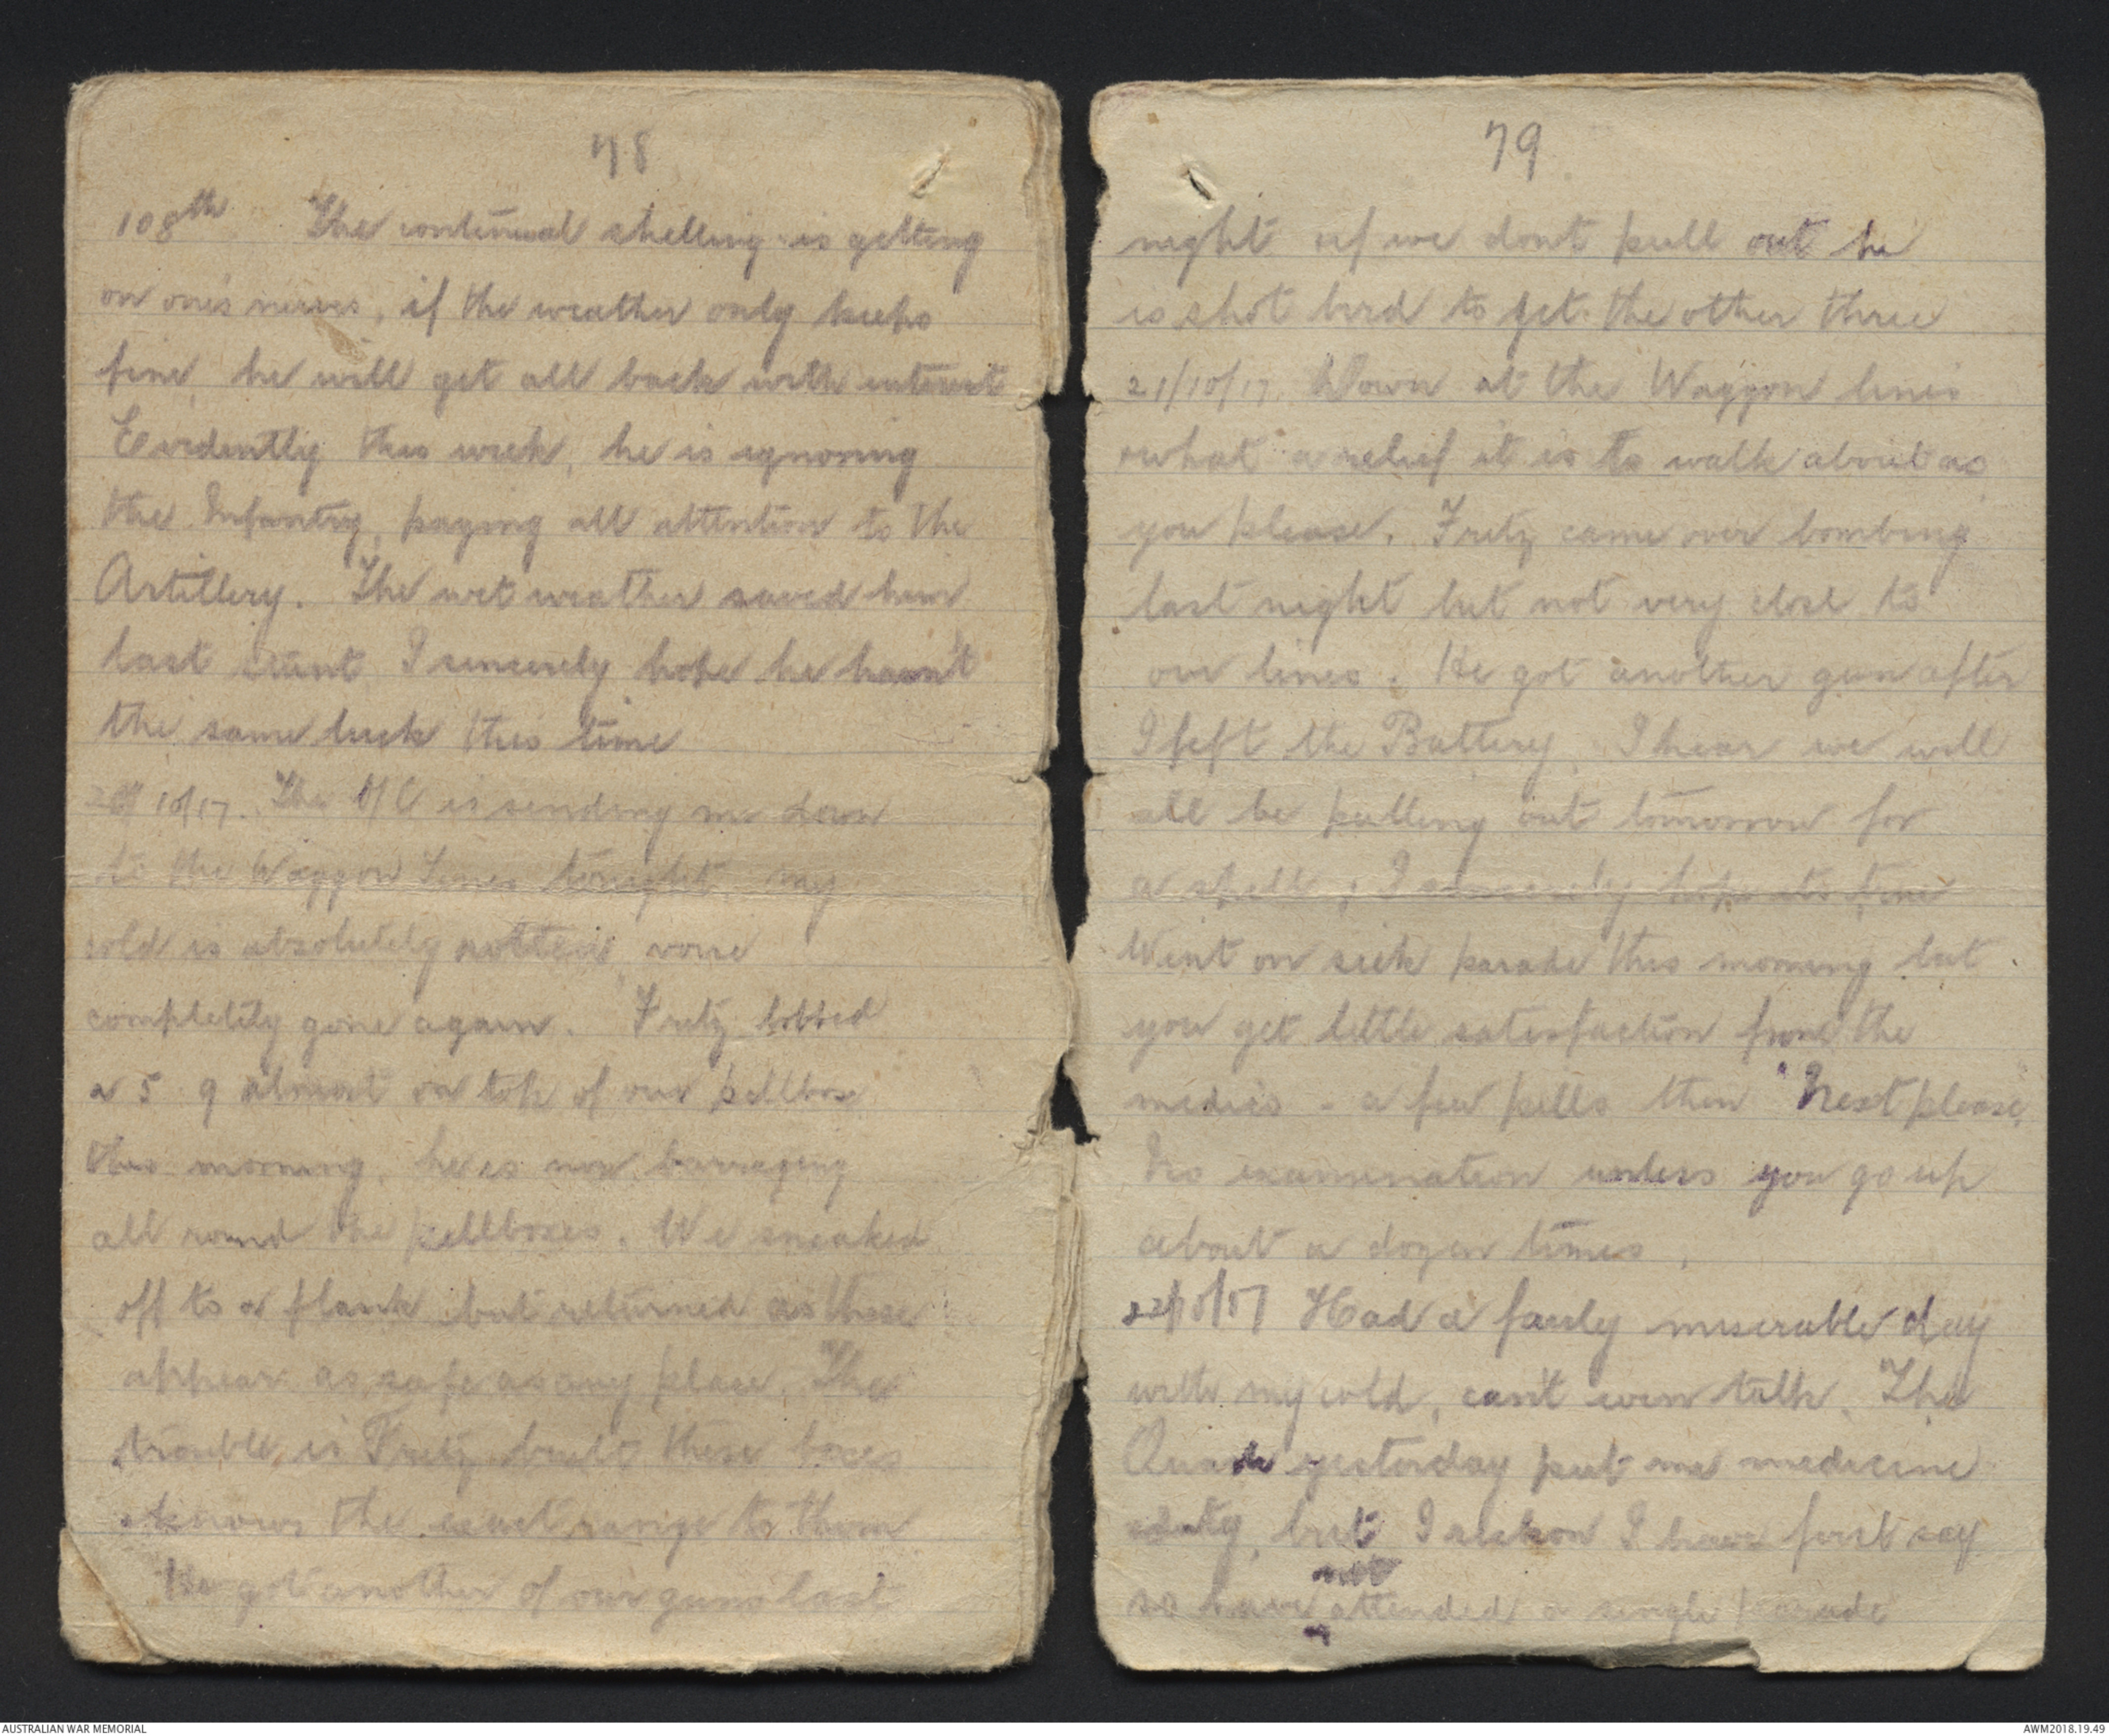 78
108th The continual shelling is getting
on one's nerves, if the weather only keeps
fine he will get all back with interest
Evidently this week, he is ignoring
the Infantry, paying all attention to the
Artillery. The wet weather saved him
last stunt I sincerely hope he hasn't
the same luck this time
20/10/17. The O/C is sending me down
to the Waggon Lines tonight my
cold is absolutely rotten voice
completely gone again. Fritz lobbed
a 5.9 almost on top of our pillbox
this morning. he is now barraging
all round the pillboxes. We sneaked
off to a flank but returned as these
appear as safe as any place. The
trouble is Fritz built these boxes
& knows the exact range to them
He got another of our guns last
79
night if we dont pull out he
is shot bird to get the other three
21/10/17. Down at the Waggon lines
what a relief it is to walk about as
you please. Fritz came over bombing
last night but not very close to
our lines. He got another gun after
I left the Battery. I hear we will
all be pulling out tomorrow for
a spell, I sincerely hope its true
Went on sick parade this morning but
you get little satisfaction from the
medics - a few pills then "Next please,
No examination unless you go up
about a dozen times.
22/10/17 Had a fairly miserable day
with my cold, can't even talk. The
Quack yesterday put me medicine
& duty, but I reckon I have first say
not
so have attended a single parade
AUSTRALIAN WAR MEMORIAL
AWM2018.19.49